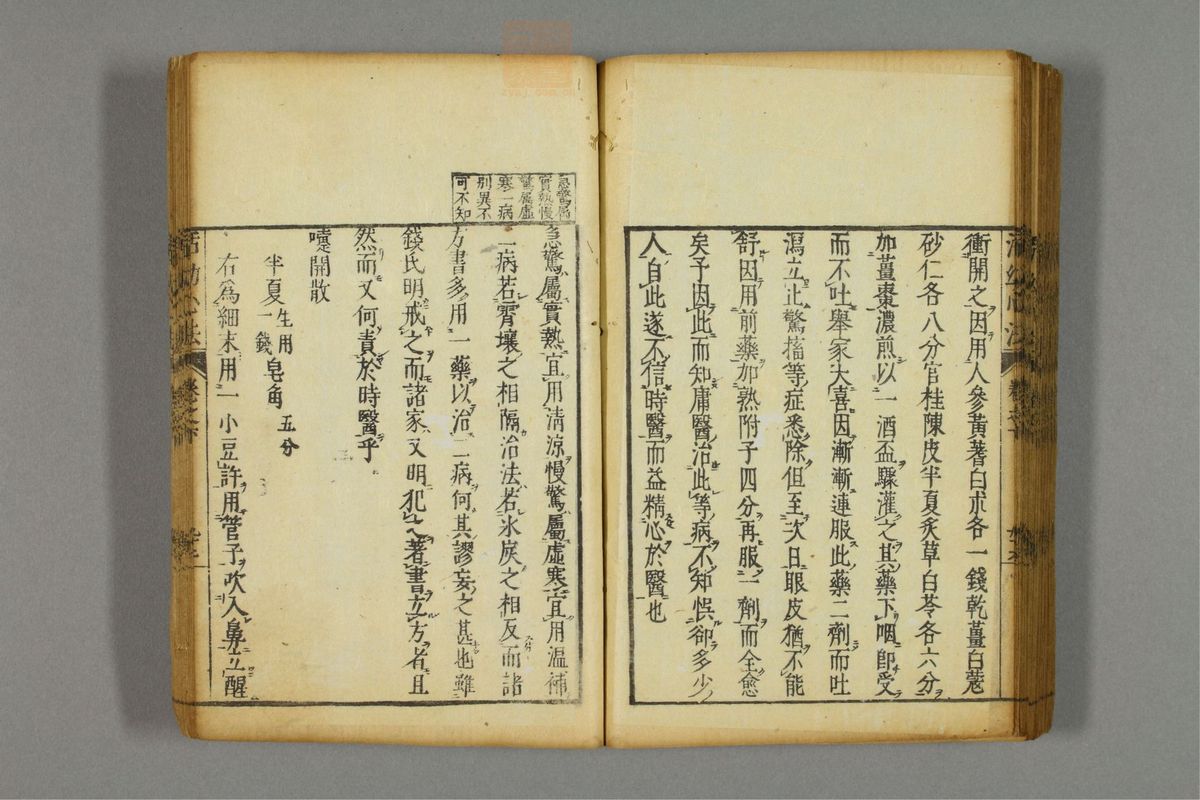 衝開之因用人參黃蓍白朮各一錢乾薑白蔻
砂仁各八分官桂陳皮半夏炙草白苓各六分
加薑棗濃煎以一酒盃驟灌之其藥下咽卽受
而不吐舉家大喜因漸漸連服此藥二劑而吐
瀉立止驚搐等症悉除但至次日眼皮猶不能
舒因用前藥加熟附子四分再服一劑而全愈
矣予因此而知庸醫治此等病不知悞卻多少
人自此遂不信時醫而益精心於醫也
急驚屬
實熱慢
驚屬虛
寒二病
別異不
可不知
急驚屬實熱宜用淸涼慢驚屬虛寒宜用温補
二病若霄壤之相隔治法若氷炭之相反而諸
方書多用一藥以治二病何其謬妄之甚也雖
錢氏明戒之而諸家又明犯之著書立方者且
然而又何責於時醫乎
嚏開散
半夏生用一錢 皂角五分
右爲細末用一小豆許用管子吹入鼻立醒
活幼心法 卷之下